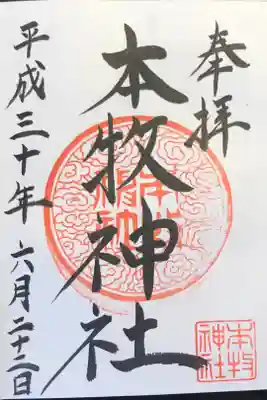 奉拝
本牧神社
平成三十年六月二十二日
本牧
神社